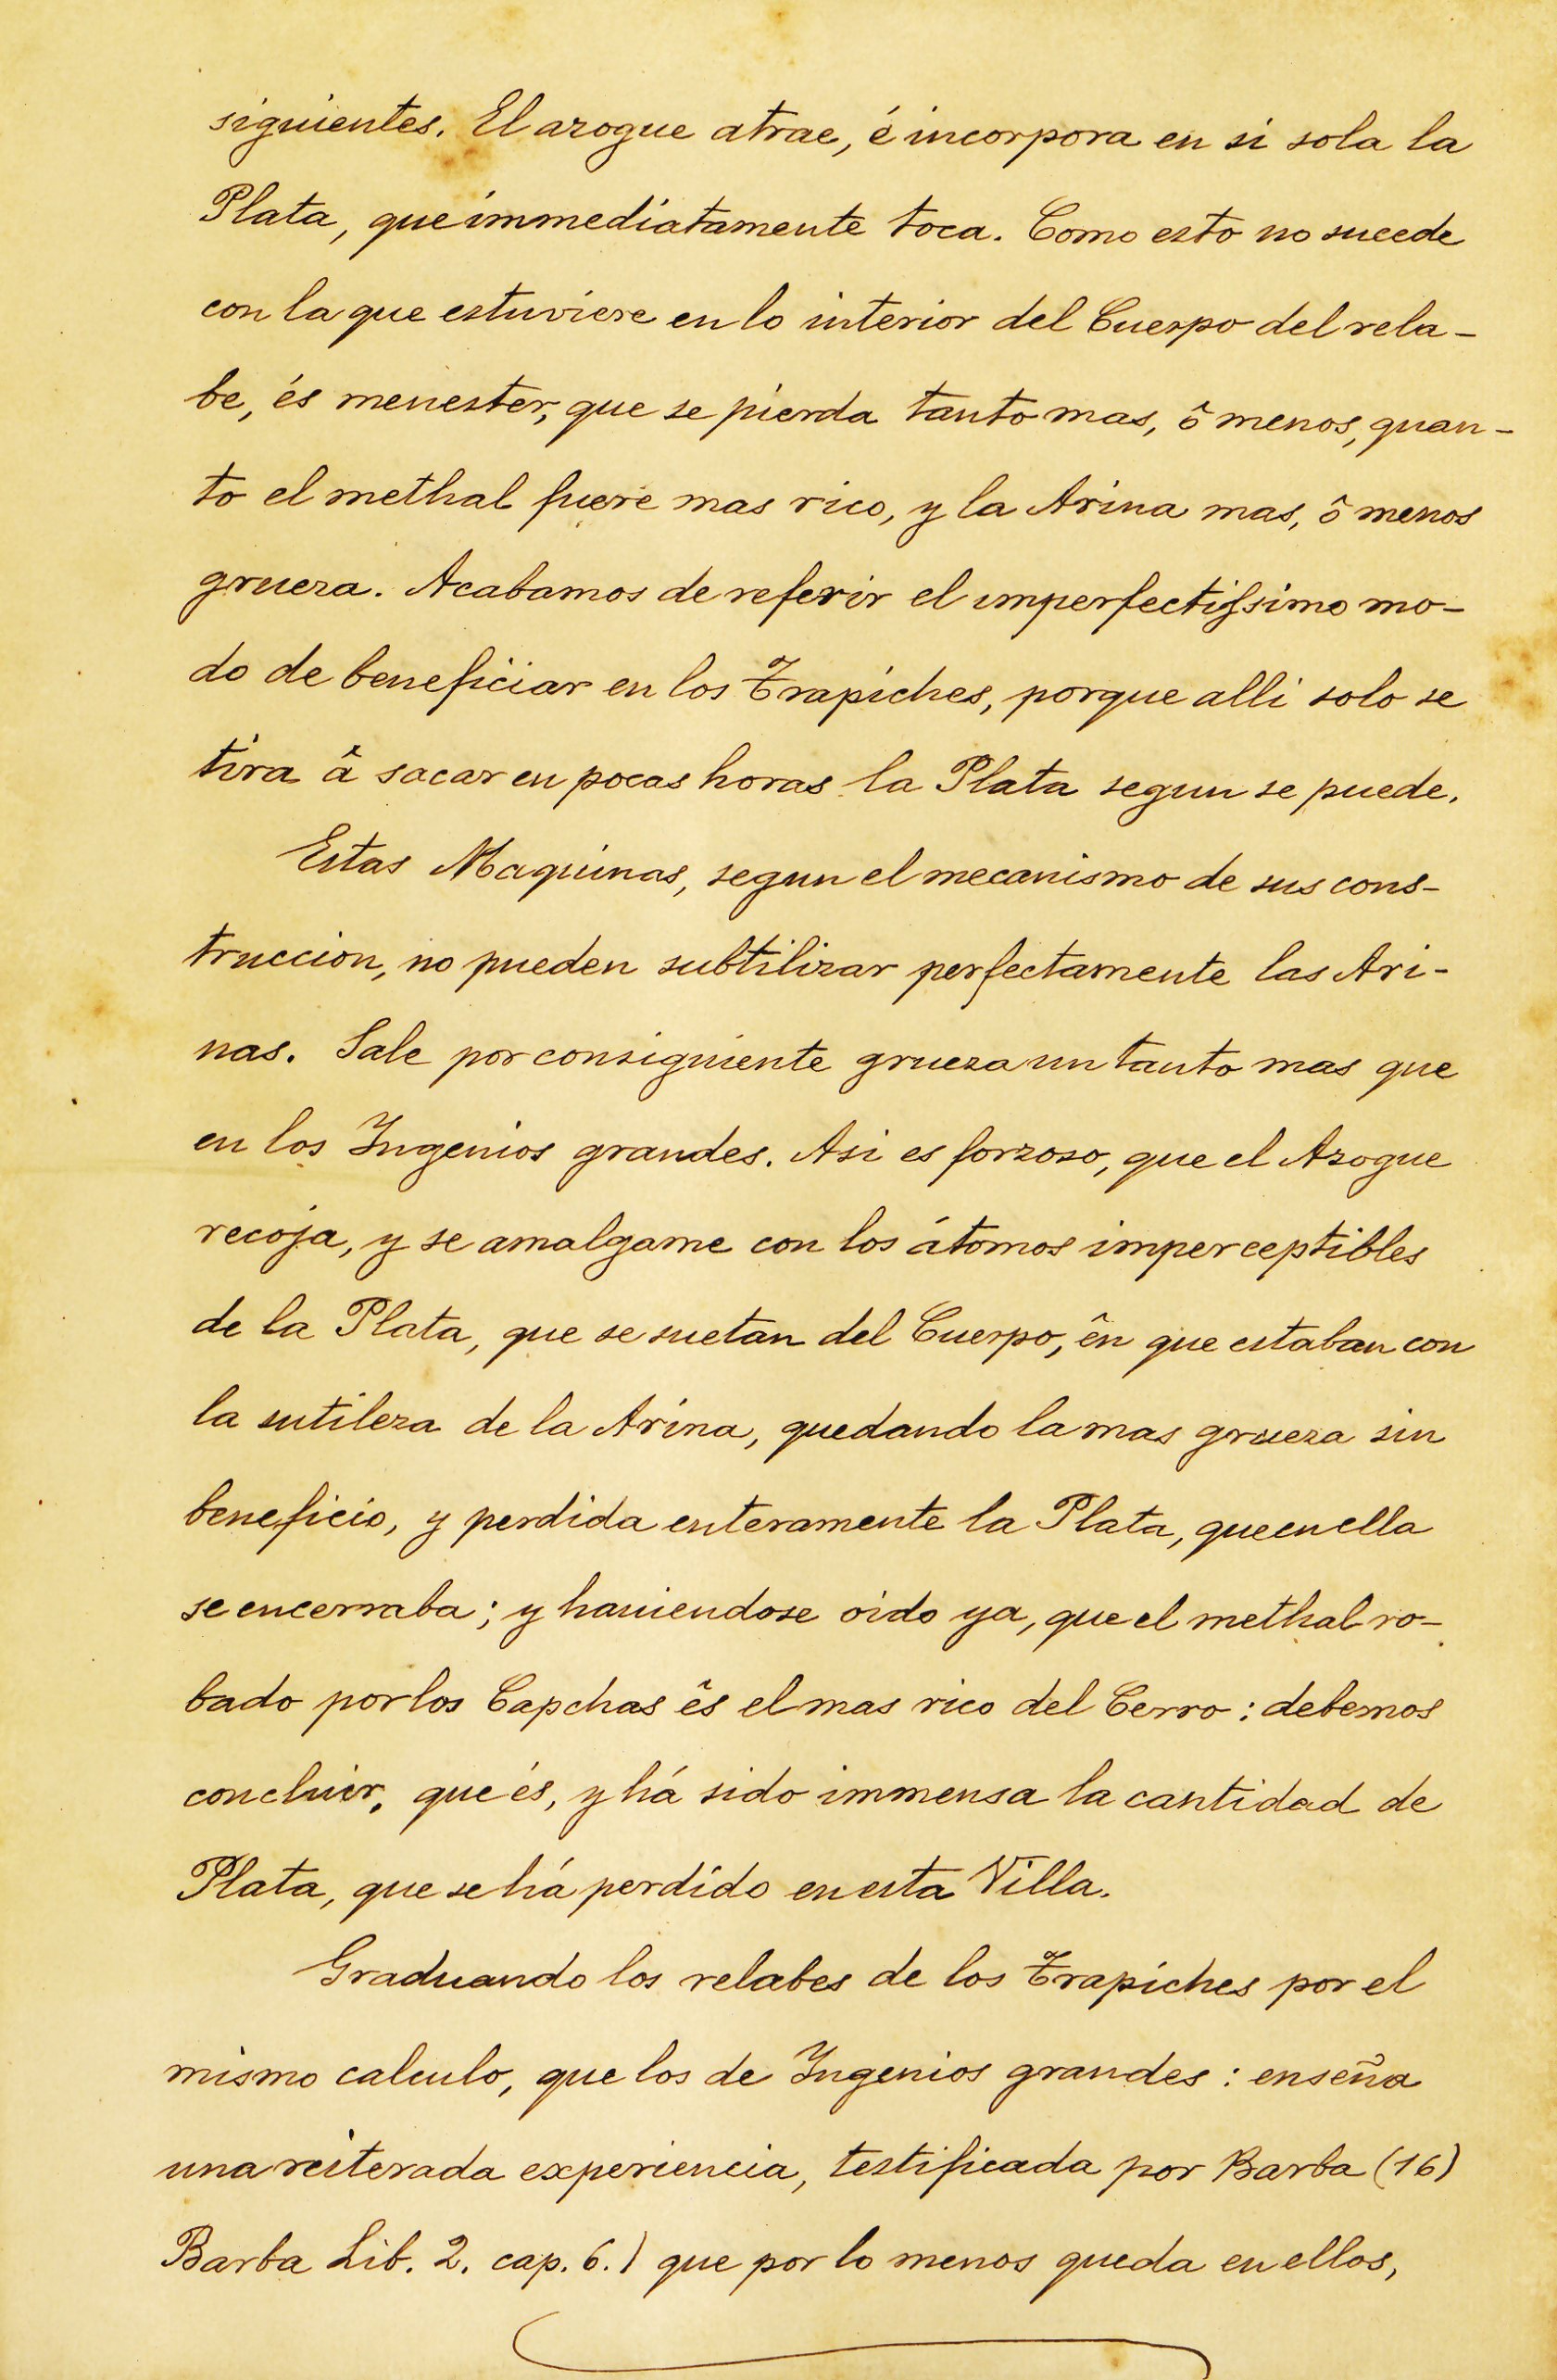 siguientes. El azogue atrae, é incorpora en si sola la
Plata, que immediatamente toca. Como esto no sucede
con la que estuviere en lo interior del Cuerpo del rela-
be, és menester, que se pierda tanto mas, ô menos, quan-
to el methal fuere mas rico, y la Arina mas, ô menos
grueza. Acabamos de referir el imperfectissimo mo-
do de beneficiar en los Trapiches, porque alli solo se
tira â sacar en pocas horas la Plata segun se puede.
Estas Maquinas, segun el mecanismo de sus cons-
truccion, no pueden subtilizar perfectamente las Ari-
nas. Sale por consiguiente grueza un tanto mas que
en los Ingenios grandes. Asi es forzoso, que el Azogue
recoja, y se amalgame con los átomos imperceptibles
de la Plata, que se suetan del Cuerpo, ên que estaban con
la sutileza de la Arina, quedando la mas grueza sin
beneficio, y perdida enteramente la Plata, que en ella
se encerraba; y haviendose oido ya, que el methal ro-
bado por los Capchas ês el mas rico del Cerro: debemos
concluir, que és, y há sido immensa la cantidad de
Plata, que se há perdido en esta Villa.
Graduando los relabes de los Trapiches por el
mismo calculo, que los de Ingenios grandes: enseña
una reiterada experiencia, testificada por Barba (16)
Barba Lib. 2. cap. 6.) que por lo menos queda en ellos,